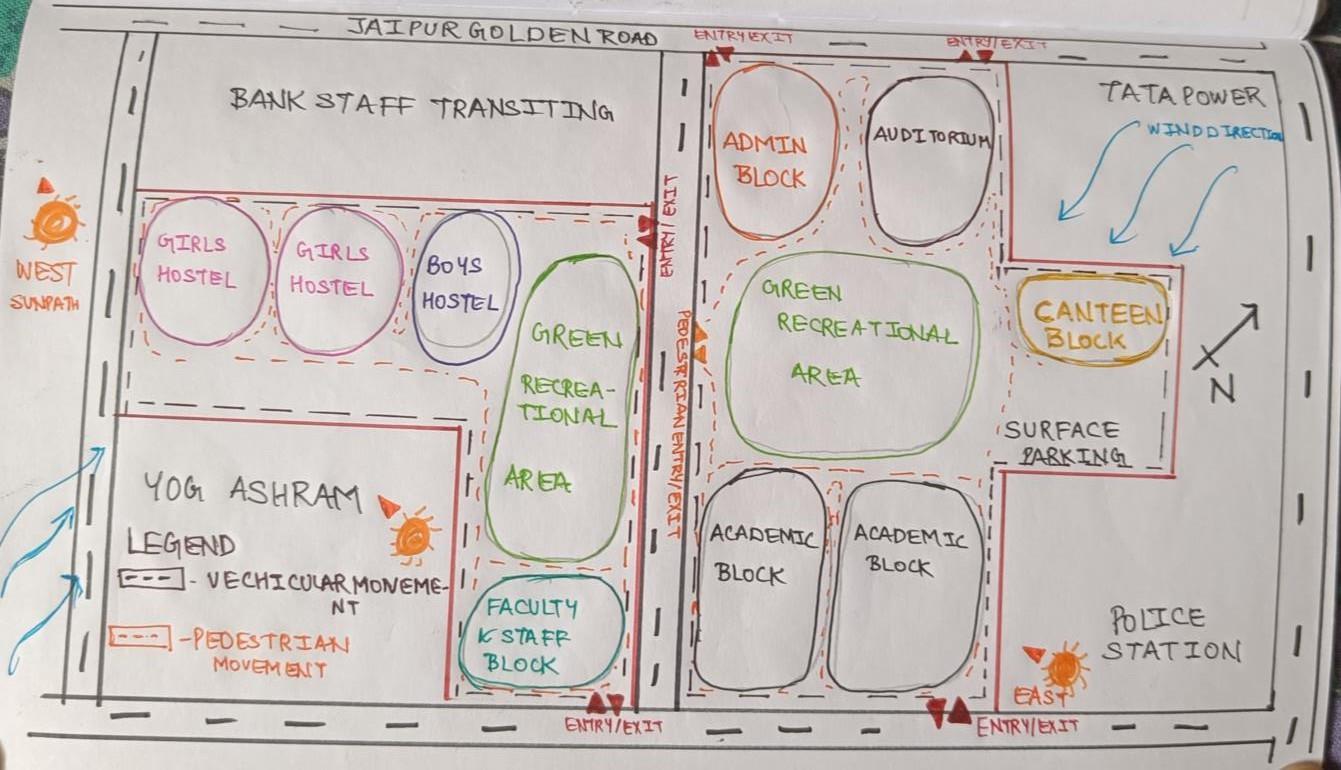 JAIPUR GOLDEN ROAD
ENTRY/EXIT
ENTRY/EXIT
BANK STAFF TRANSITING
TATA POWER
WIND DIRECTION
ADMIN
BLOCK
AUDITORIUM
ENTRY/EXIT
WEST
SUNPATH
GIRLS
HOSTEL
GIRLS
HOSTEL
BOYS
HOSTEL
GREEN
RECREA-
TIONAL
AREA
PEDESTRIAN ENTRY/EXIT
GREEN
RECREATIONAL
AREA
CANTEEN
BLOCK
N
SURFACE
PARKING
YOG ASHRAM
LEGEND
- VECHICULAR MONEME-
NT
-PEDESTRIAN
MOVEMENT
FACULTY
& STAFF
BLOCK
ACADEMIC
BLOCK
ACADEMIC
BLOCK
POLICE
STATION
EAST
ENTRY/EXIT
ENTRY/EXIT